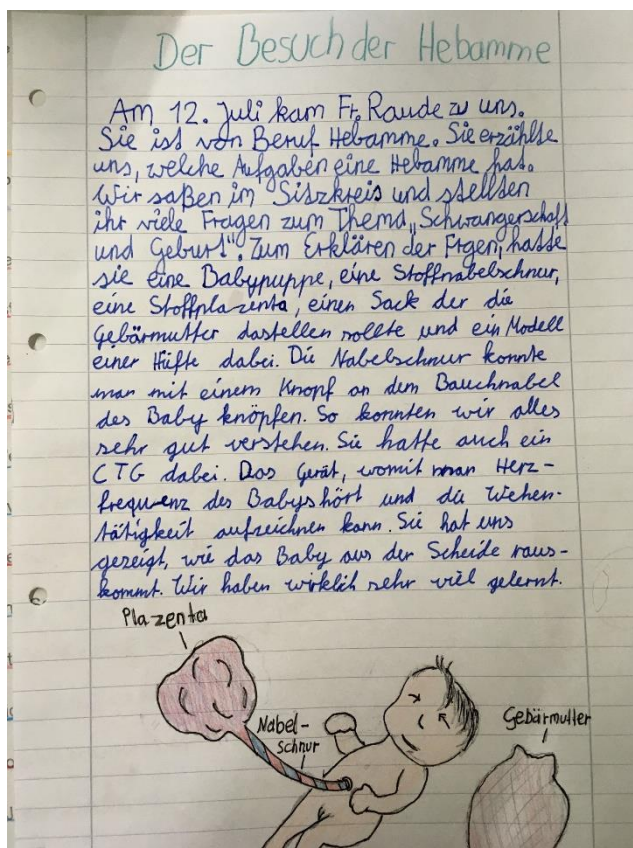 Der Besuch der Hebamme
Am 12. Juli kam Fr. Raude zu uns.
Sie ist von Beruf Hebamme. Sie erzählte
uns, welche Aufgaben eine Hebamme hat.
Wir saßen im Sitzkreis und stellten
ihr viele Fragen zum Thema „Schwangerschaft
und Geburt". Zum Erklären der Frgen, hatte
sie eine Babypuppe, eine Stoffnabelschnur,
eine Stoffplazenta, einen Sack der die
Gebärmutter dastellen sollte und ein Modell
einer Hüfte dabei. Die Nabelschnur konnte
man mit einem Knopf an dem Bauchnabel
des Baby knöpfen. So konnten wir alles
sehr gut verstehen. Sie hatte auch ein
CTG dabei. Das Gerät, womit man Herz-
frequenz des Babys hört und die Wehen-
tätigkeit aufzeichnen kann. Sie hat uns
gezeigt, wie das Baby aus der Scheide raus-
kommt. Wir haben wirklich sehr viel gelernt.
Plazenta
Nabel-
schnur
Gebärmutter